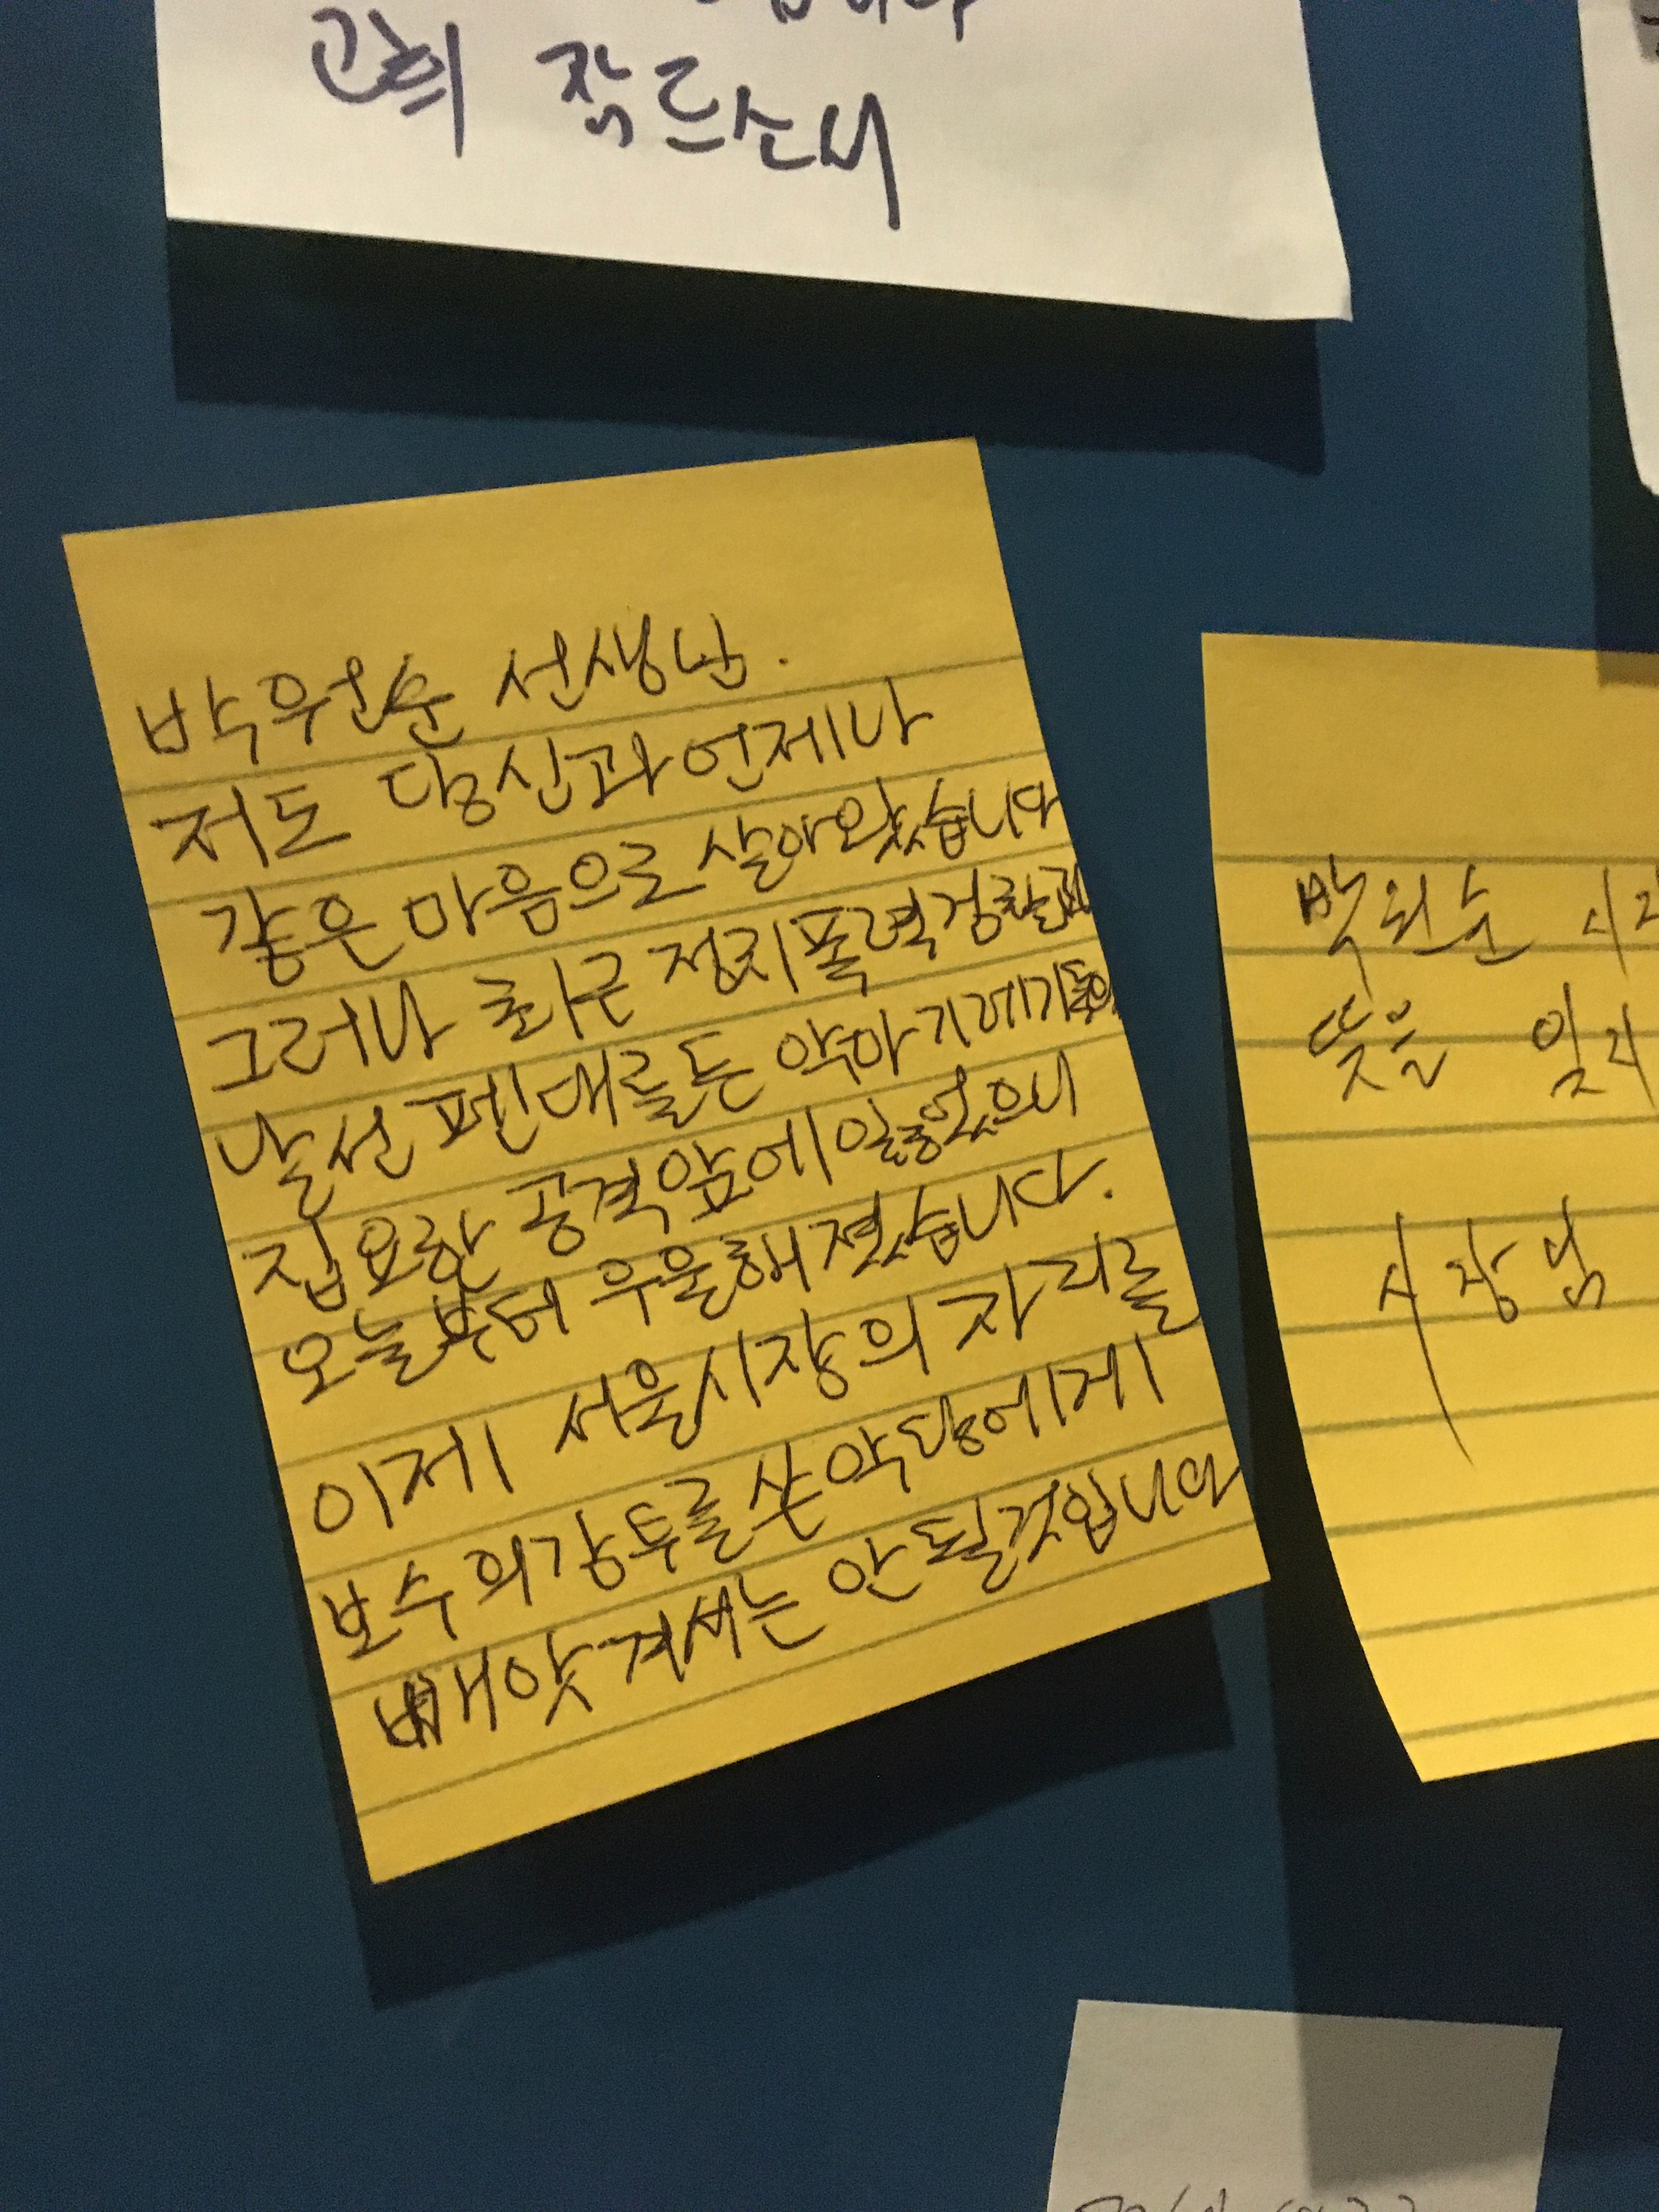 고의 잠드소서
박원순 선생님.
저도 당신과 언제나
같은 마음으로 살아왔습니다
그러나 최근 정치폭력검찰과
날선 펜대를든 악마 기레기들의
집요한 공격앞에 잃을없으니
오늘부터 우울해졌습니다.
이제 서울시장의 자리를
보수의감투를 쓴 악당에게
빼앗겨서는 안될것입니다
박원순 시장
뜻을 잊지
시장님